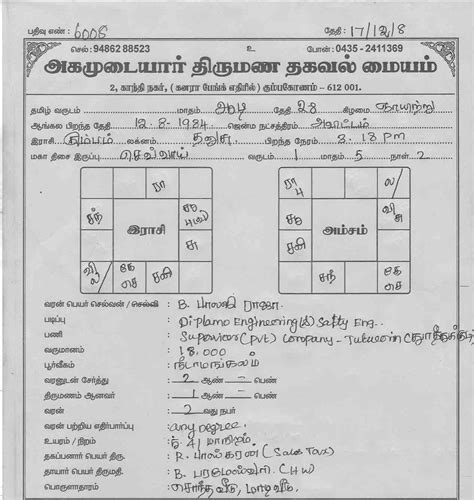 பதிவு எண் : 6008 தேதி : 17/12/8
செல் : 94862 88523 உ போன் : 0435 - 2411369
அகமுடையார் திருமண தகவல் மையம்
2, காந்தி நகர், (கனரா பேங்க் எதிரில்) கும்பகோணம் - 612 001.
தமிழ் வருடம் மாதம் ஆடி தேதி 28 கிழமை ஞாயிற்று
ஆங்கில பிறந்த தேதி 12-8-1984 ஜென்ம நட்சத்திரம்
இராசி கும்பம் லக்னம் தனுசு பிறந்த நேரம் 3.13 PM
மகா திசை இருப்பு செவ்வாய் வருடம் 1 மாதம் 5 நாள் 2
ரா ரா ல/
சந் இராசி சூ சூ அம்சம்
சுகி
ல/ கே சனி கே
செ செ
வரன் பெயர் செல்வன் / செல்வி : B. பாலாஜி ராஜா
படிப்பு : Diplamo Engineering Safty Eng.
பணி : Supervisor (Pvt) Company - Tutucorin
வருமானம் : 18,000
பூர்வீகம் : நீடாமங்கலம்
வரனுடன் சேர்த்து : 2 ஆண் பெண்
திருமணம் ஆனவர் : 1 ஆண் பெண்
வரன் : 2 வது நபர்
வரன் பற்றிய எதிர்பார்ப்பு : any degree
உயரம் / நிறம் : மாநிறம்
தகப்பனார் பெயர் திரு. : R. பாஸ்கரன் (Sales Tax)
தாயார் பெயர் திருமதி. : B. (H.W)
பொருளாதாரம் : சொந்த வீடு, மாடிவீடு.